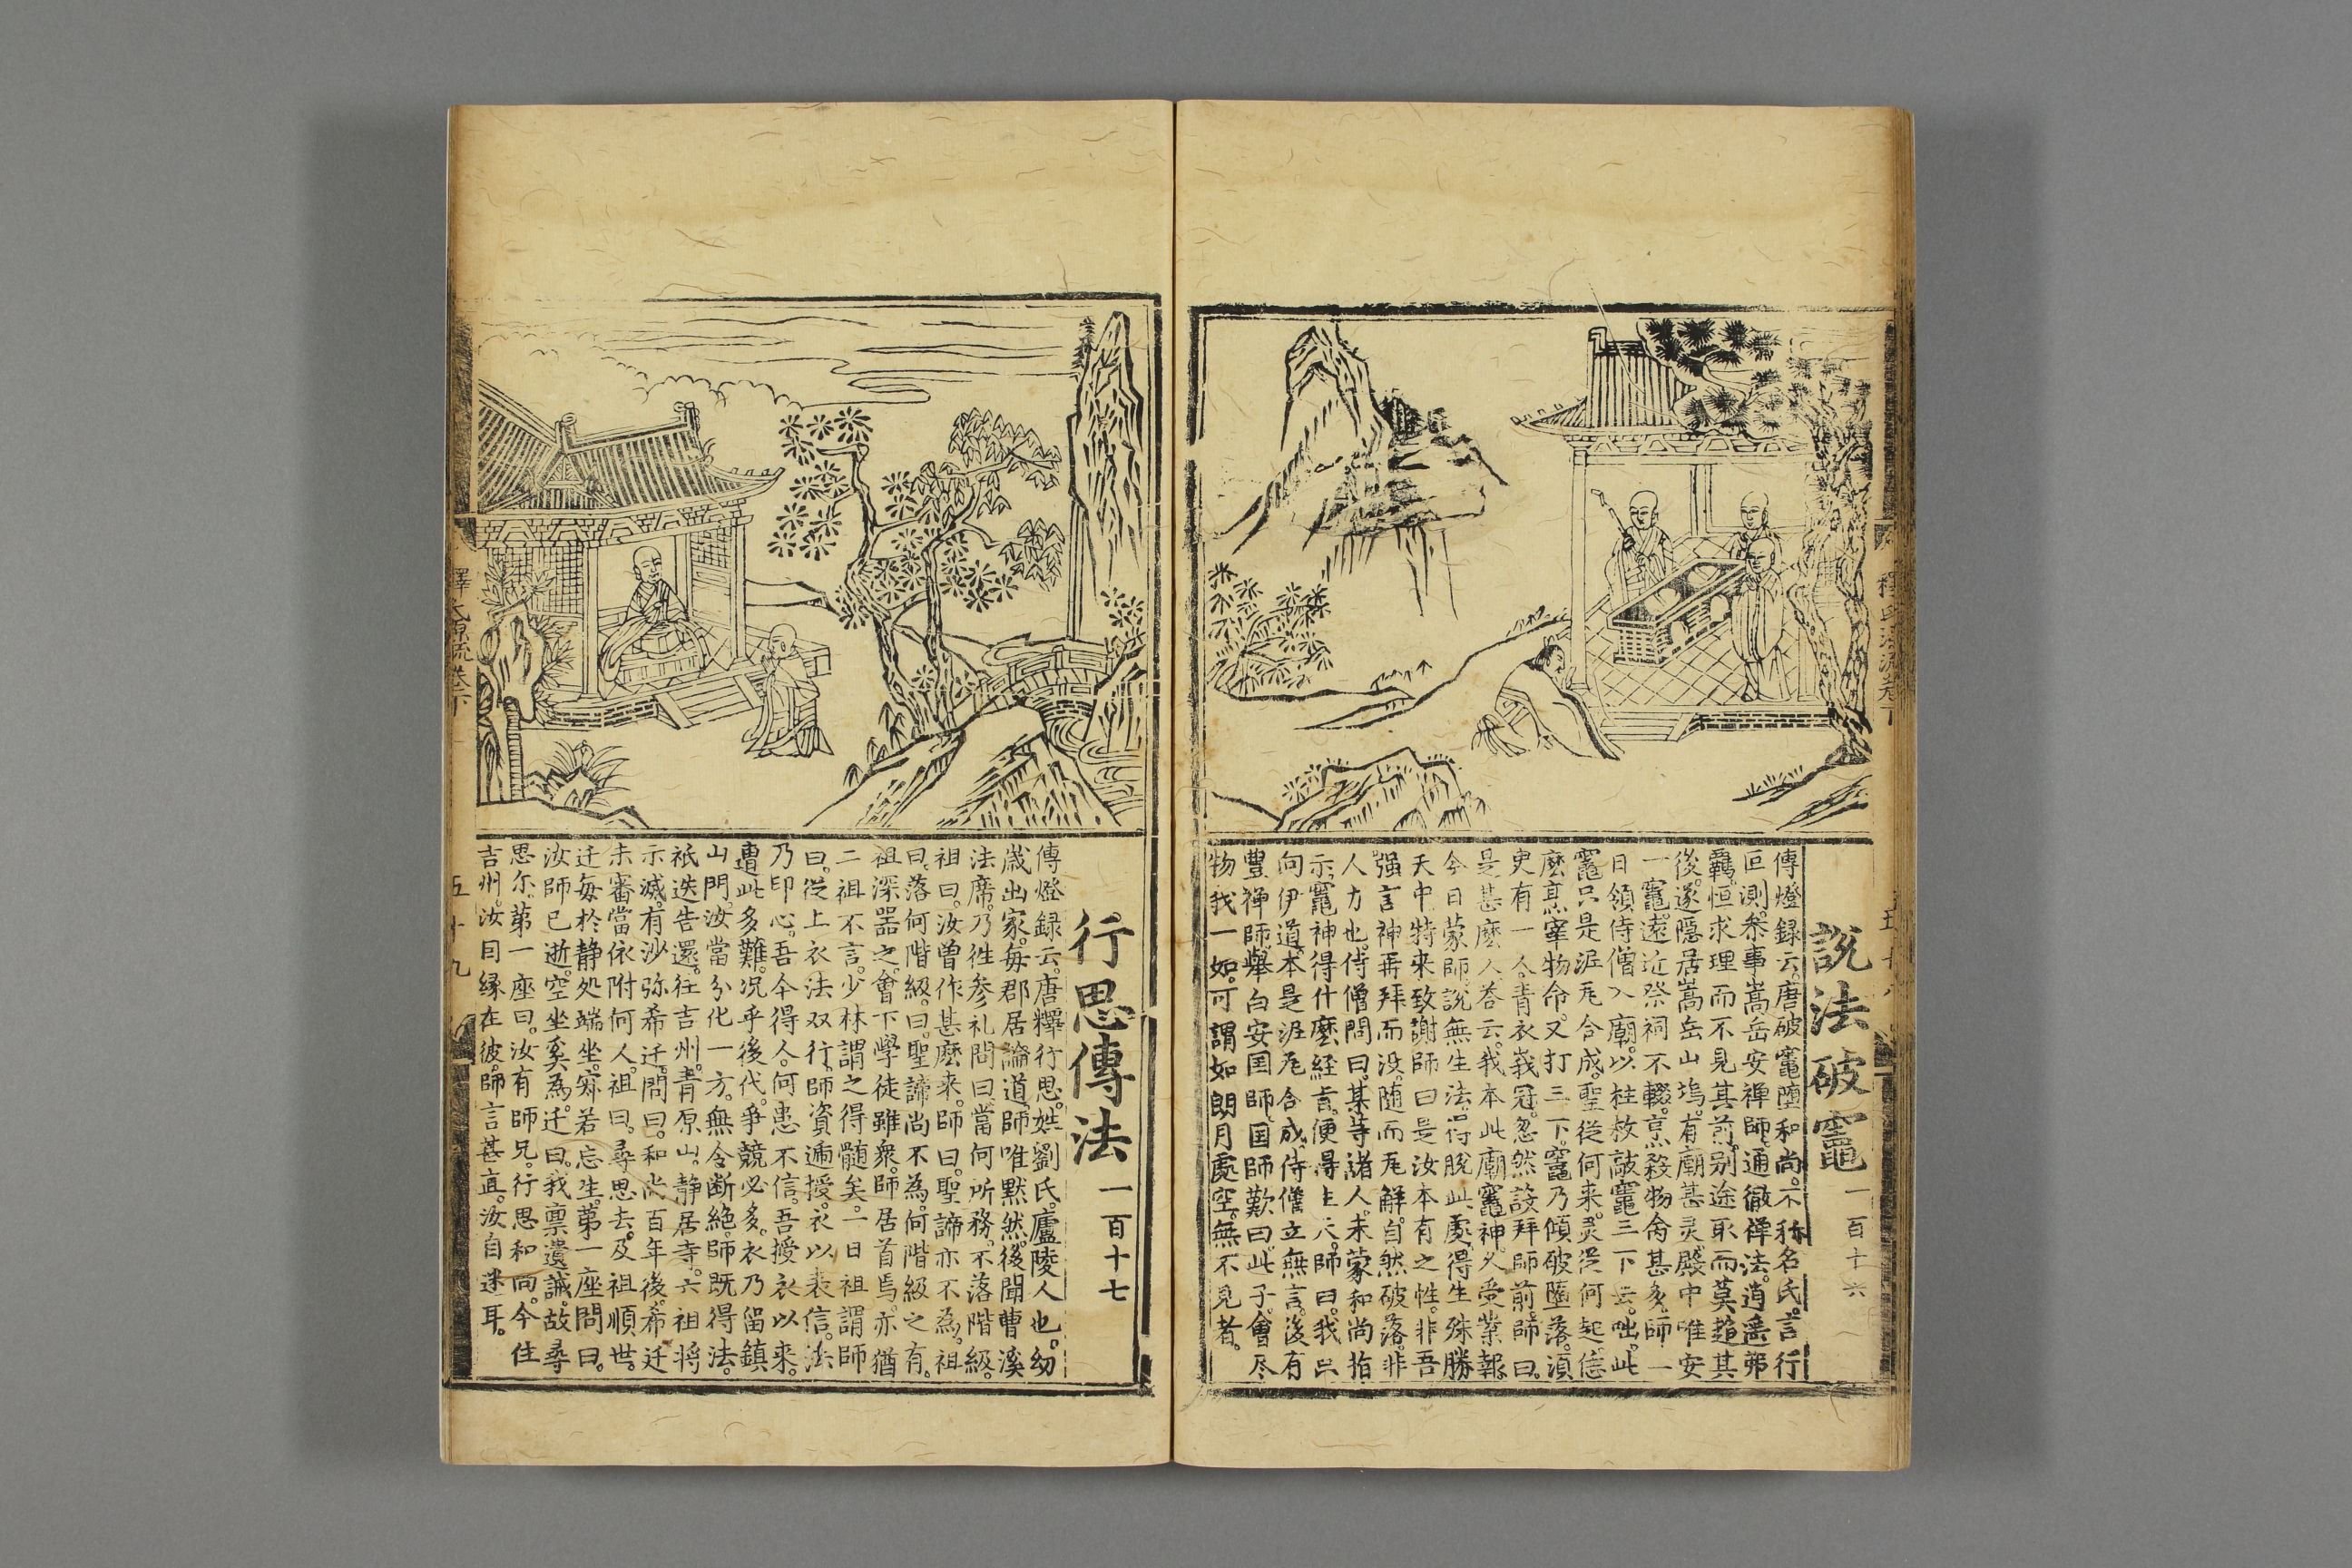 說法破竈 一百十六
傳燈録云。唐破竈墮和尚。不称名氏。言行
叵測。叅事嵩岳安禅師。通徹禅法。逍遥
覊。恒求理而不見其前。别途取而莫趂其
後。遂隠居嵩岳山塢。有廟甚灵。殿中唯安
一竈。遠近祭祠不輟。烹殺物禽甚多。師一
日領侍僧入廟。以柱杖敲竈三下云。咄。此
竈只是泥瓦合成。聖從何来。灵從何起。恁
麽烹宰物命。又打三下。竈乃傾破墮落。須
臾有一人。青衣峩冠。忽然設拜師前。師曰。
是甚麽人。答云。我本此廟竈神。久受業報。
今日蒙師說無生法。得脫此處。得生殊勝
天中。特来致謝。師曰。是汝本有之性。非吾
强言。神再拜而没。随而瓦解。自然破落。非
人力也。侍僧問曰。某等諸人。未蒙和尚指
示。竈神得什麽経旨。便得生天。師曰。我只
向伊道。本是泥瓦合成。侍僧立無言。後有
豊禅師。舉白安国師。国師歎曰。此子。會尽
物我一如。可謂如朗月處空。無不見者。
行思傳法 一百十七
傳燈録云。唐釋行思。姓劉氏。廬陵人也。幼
歳出家。毎郡居論道。師唯黙然。後聞曹溪
法席。乃徃参礼。問曰。當何所務。不落階級。
祖曰。汝曽作甚麽来。師曰。聖諦亦不為。祖
曰。落何階級。曰。聖諦尚不為。何階級之有。
祖深噐之。會下學徒雖衆。師居首焉。亦猶
二祖不言。少林謂之得髄矣。一日祖謂師
曰。從上衣法双行。師資逓授。衣以表信。法
乃印心。吾今得人。何患不信。吾授衣以来。
遭此多難。况乎後代。爭競必多。衣乃留鎮
山門。汝當分化一方。無令断絶。師既得法。
祇迭告還。往吉州。青原山。静居寺。六祖将
示滅。有沙弥希迁。問曰。和尚百年後。希迁
未審當依附何人。祖曰。尋思去。及祖順世。
迁毎於静処端坐。寂若忘生。第一座問曰。
汝師已逝。空坐奚為。迁曰。我禀遺誡。故尋
思尔。第一座曰。汝有師兄。行思和尚。今住
吉州。汝因縁在彼。師言甚直。汝自迷耳。
釋氏源流卷下
五十九